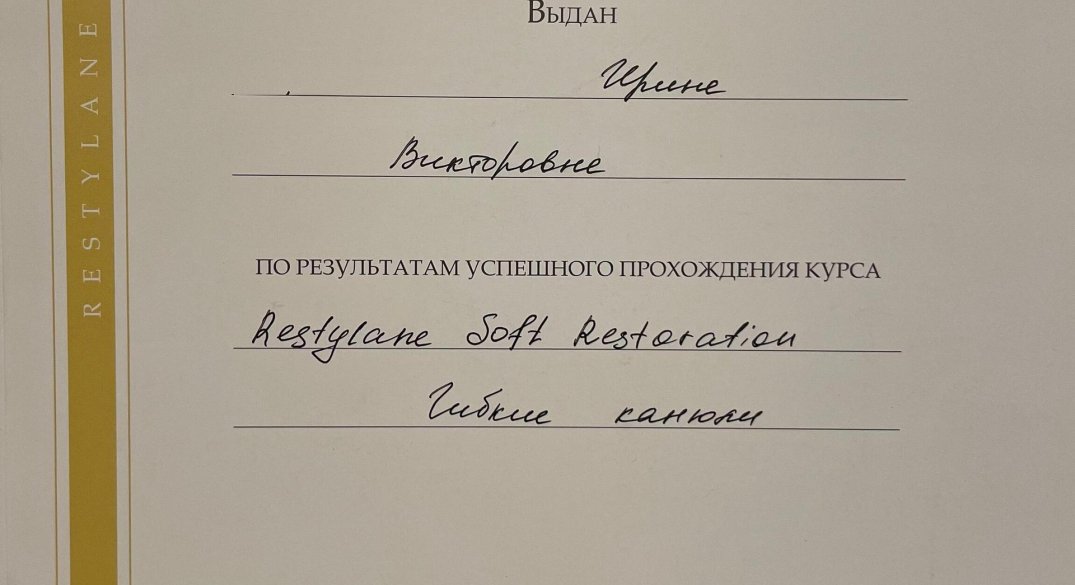 RESTYLANE
Выдан
Ирине
Викторовне
ПО РЕЗУЛЬТАТАМ УСПЕШНОГО ПРОХОЖДЕНИЯ КУРСА
Restylane Soft Restoration
Гибкие канюли